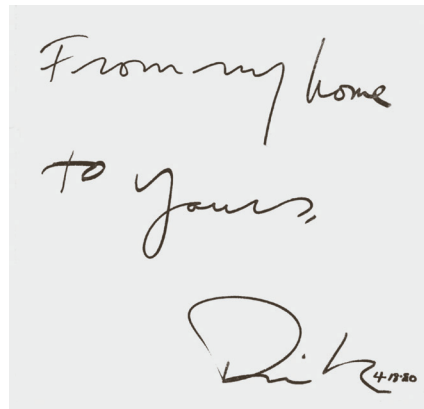 From my home
to yours,
Dick 4·18·80